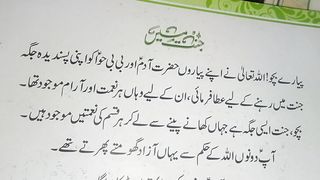 جنت میں
پیارے بچو! اللہ تعالیٰ نے اپنے پیاروں حضرت آدمؑ اور بی بی حواؑ کو اپنی پسندیدہ جگہ
جنت میں رہنے کے لیے عطا فرمائی، ان کے لیے وہاں ہر نعمت اور آرام موجود تھا۔
بچو، جنت ایسی جگہ ہے جہاں کھانے پینے سے لے کر ہر قسم کی نعمتیں موجود ہیں۔
آپؑ دونوں اللہ کے حکم سے یہاں آزاد گھومتے پھرتے تھے۔